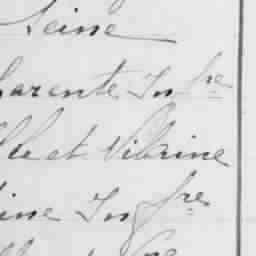 Seine
harente Infre
lle et Vilaine
eine Infre